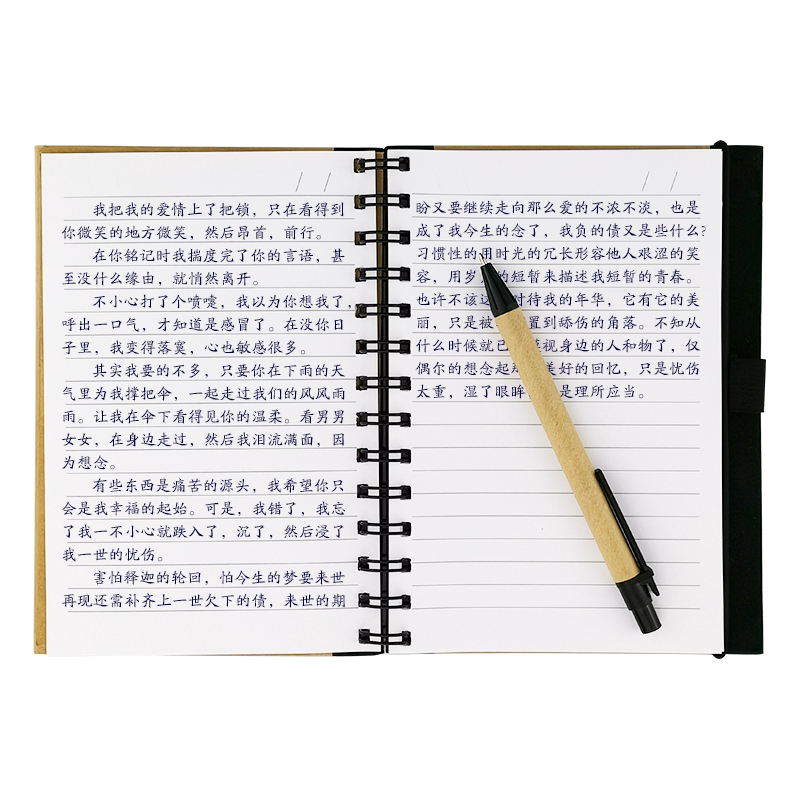 我把我的爱情上了把锁，只在看得到
你微笑的地方微笑，然后昂首，前行。
在你铭记时我揣度完了你的言语，甚
至没什么缘由，就悄然离开。
不小心打了个喷嚏，我以为你想我了，
呼出一口气，才知道是感冒了。在没你日
子里，我变得落寞，心也敏感很多。
其实我要的不多，只要你在下雨的天
气里为我撑把伞，一起走过我们的风风雨
雨。让我在伞下看得见你的温柔。看男男
女女，在身边走过，然后我泪流满面，因
为想念。
有些东西是痛苦的源头，我希望你只
会是我幸福的起始。可是，我错了，我忘
了我一不小心就跌入了，沉了，然后浸了
我一世的忧伤。
害怕释迦的轮回，怕今生的梦要来世
再现还需补齐上一世欠下的债，来世的期
盼又要继续走向那么爱的不浓不淡，也是
成了我今生的念了，我负的债又是些什么?
习惯性的用时光的冗长形容他人艰涩的笑
容，用岁的短暂来描述我短暂的青春。
也许不该这时待我的年华，它有它的美
丽，只是被置到舔伤的角落。不知从
什么时候就已视身边的人和物了，仅
偶尔的想念起美好的回忆，只是忧伤
太重，湿了眼眸是理所应当。